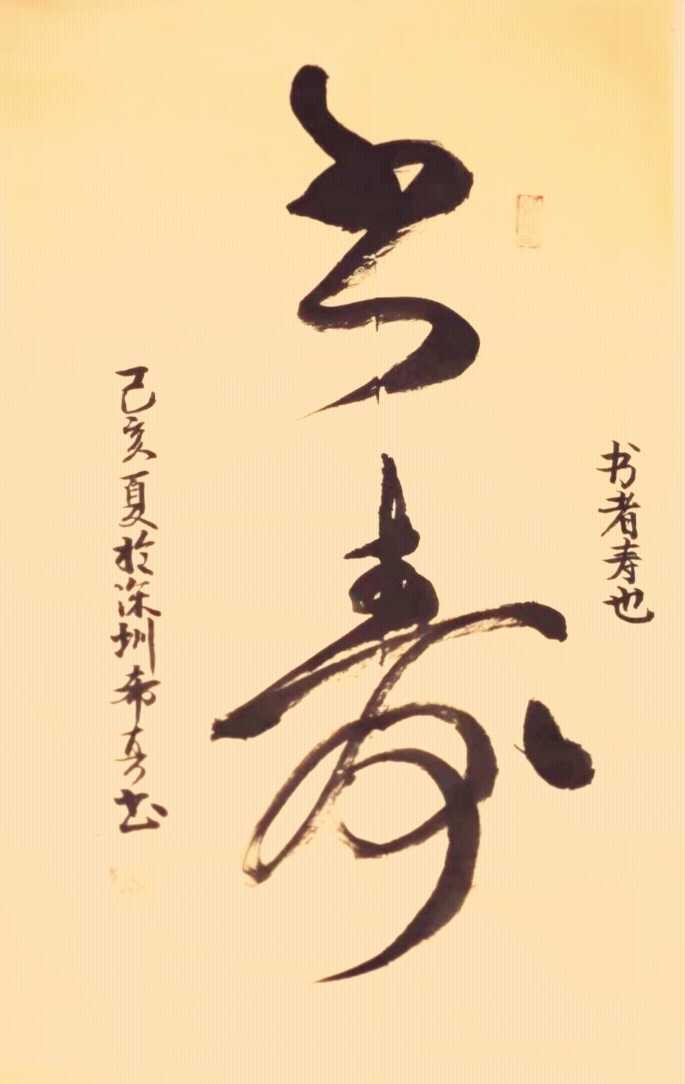 书者寿也
书寿
己亥夏於深圳希真书